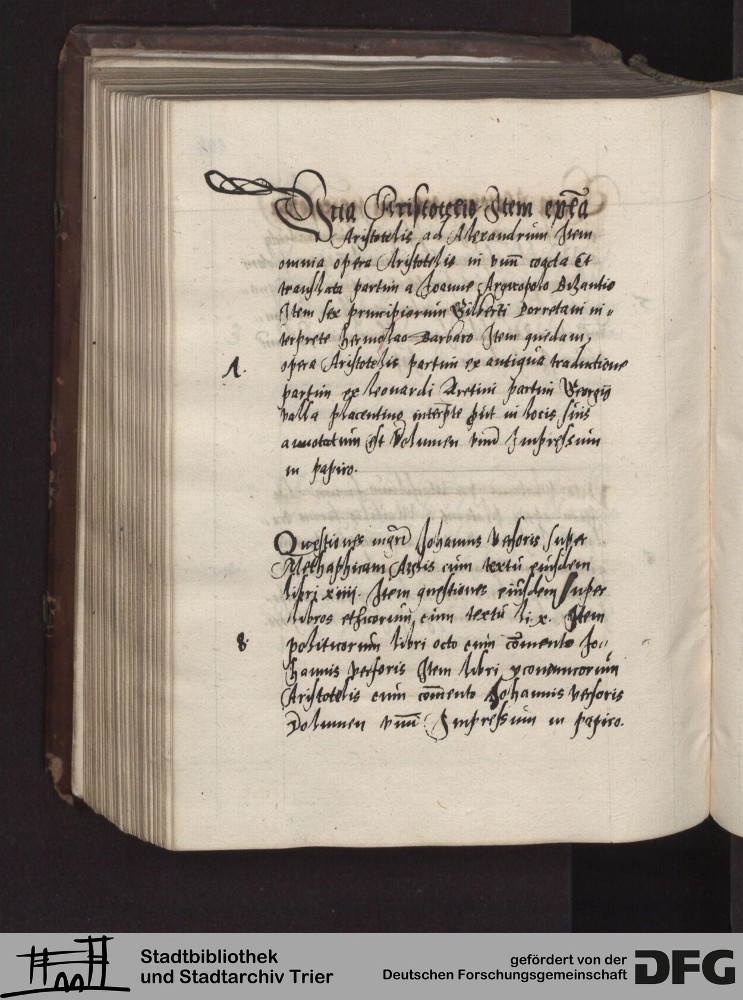 Vita Aristotelis Item ep̄la
Aristotelis ad Alexandrum Item
omnia opera Aristotelis in vnū coacta Et
translata partim a Joanne Argiropolo Bizantio
Item sex principiorum Gilberti Porretani in„
terprete hermolao Barbaro Item quedam
opera Aristotelis partim ex antiqua traductione
A.
partim ex leonardi Aretini partim Georgio
valla placentino interp̄te put in locis suis
annotatum est Volumen vnū Impressum
in papiro.
Questiones mgr̄i Johannis versoris super
Methaphicam Arēlis cum textu eiusdem
libri xiiii. Item questiones eiusdem super
libros ethicorum, cum textu li. x. Item
8
politicorum libri octo cum cōmento Jo„
hannis versoris Item libri yconomicorum
Aristotelis cum cōmento Johannis versoris
Volumen vnū Impressum in papiro.
Stadtbibliothek
und Stadtarchiv Trier
gefördert von der
Deutschen Forschungsgemeinschaft
DFG